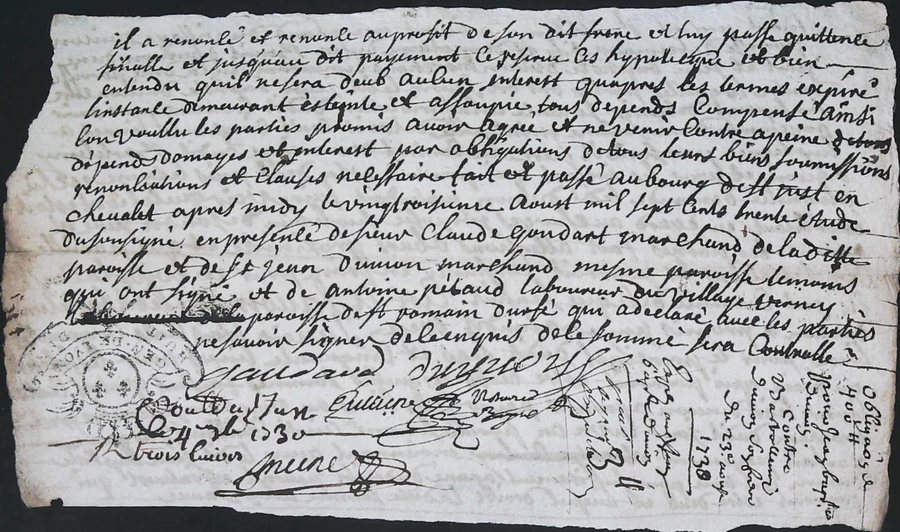 il a renoncé et renonce au profit de son dit frere et luy passe quittence
finalle et jusquau dit payement le reserve les hypoteque et bien
entendu quil ne sera deub aulcun interest quapres les termes expiré
linstance demeurant esteinte et assoupie tous depends compensé ainsi
lon voullu les parties promis avoir agreé et ne venir contre a peine de tous
dépends domages et interest par obligations de tous leurs biens soumissions
renontiations et clauses nécessaire fait et passé au bourg de st just en
chevalet apres midy le vingtroisieme aoust mil sept cents trente étude
du soussigné en presence de sieur Claude Gondart marchand de la ditte
paroisse et de sr jean Dunion marchand mesme paroisse temoins
qui ont signé et de antoine pétaud laboureur du village
de la paroisse de st romain durfé qui a declaré avec les parties
ne savoir signer de ce enquis de ce sommé sera Controllé
st Just
le 4 7bre 1730
R trois livres
1730
Obligaon de
400 tt
pour jean baptiste
Contre
Barthelemy
du 23e aoust